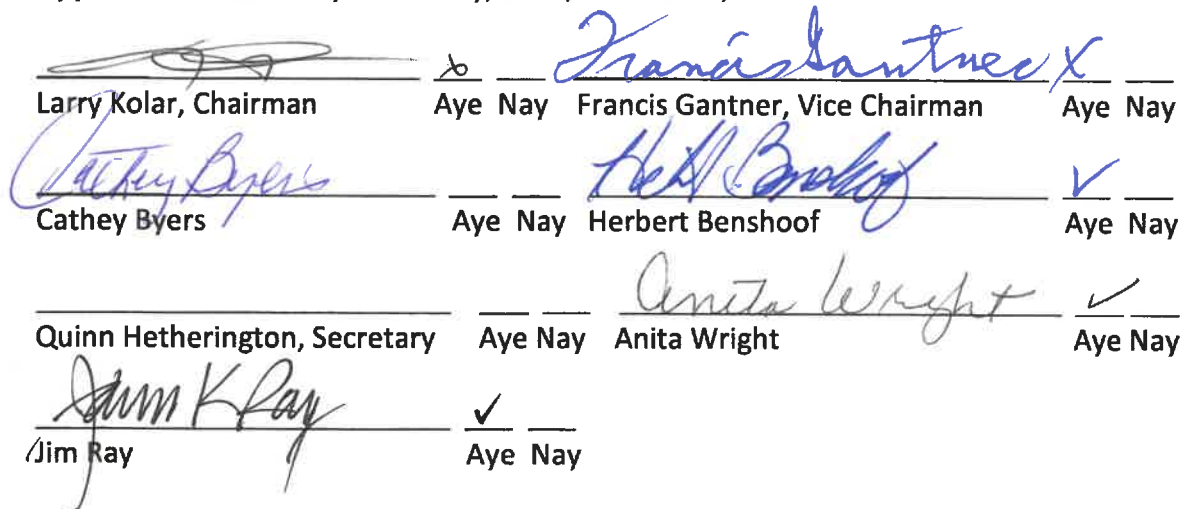 x Francis Gantner X
Larry Kolar, Chairman Aye Nay Francis Gantner, Vice Chairman Aye Nay
Cathey Byers ✓
Cathey Byers Aye Nay Herbert Benshoof Aye Nay
Anita Wright ✓
Quinn Hetherington, Secretary Aye Nay Anita Wright Aye Nay
K Ray ✓
Jim Ray Aye Nay